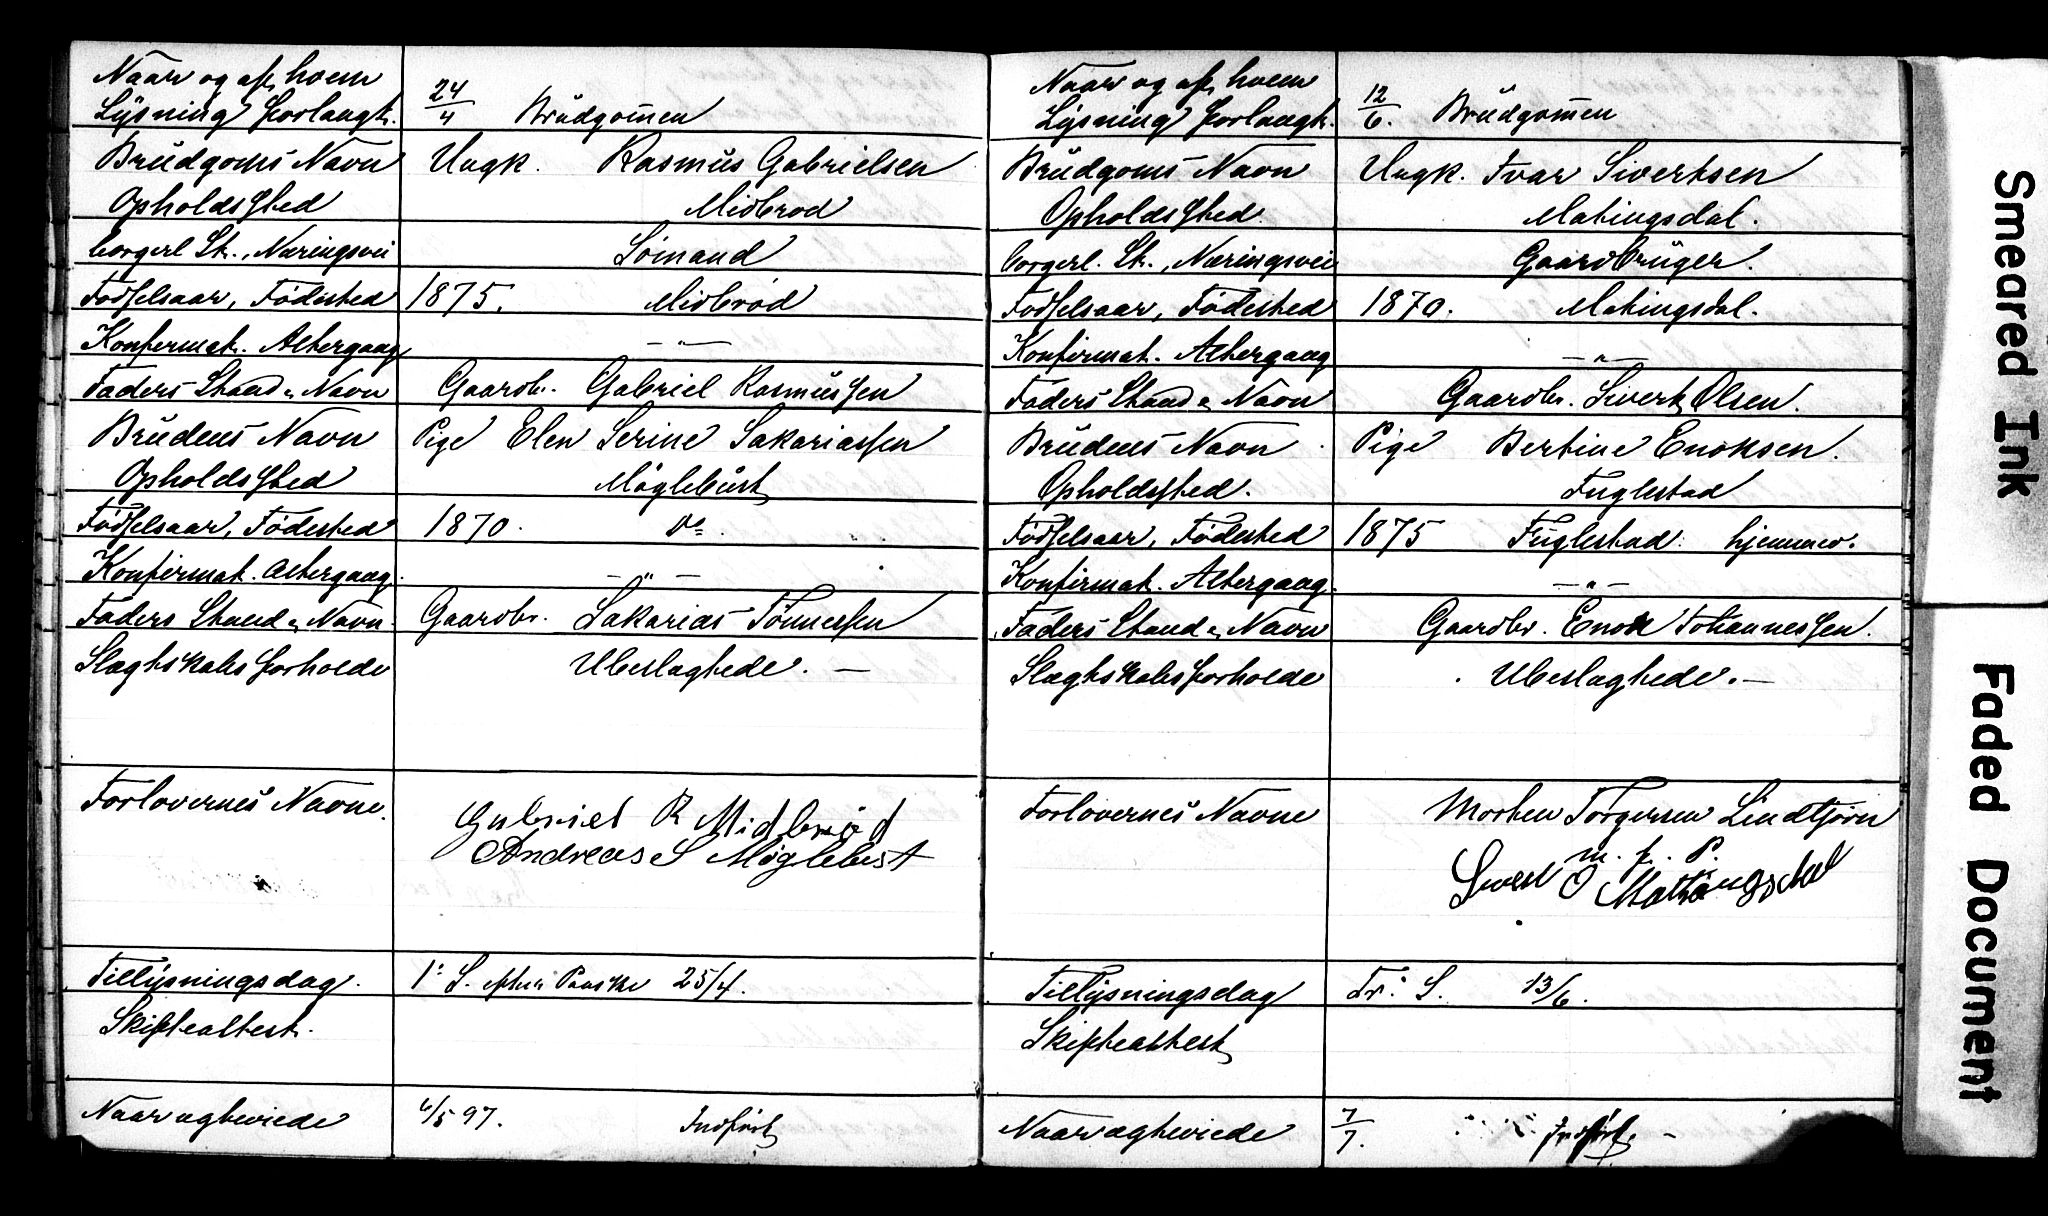 Naar og af hvem
Lysning forlangt. 24/4 Brudgommen
Brudgoms Navn Ungk. Rasmus Gabrielsen
Opholdssted Midbrød
borgerl St., Næringsvei Sømand
Fødselsaar, Fødested 1875. Midbrød
Konfirmat. Altergang — " —
Faders Stand & Navn Gaardbr. Gabriel Rasmussen
Brudens Navn Pige Elen Serine Sakariassen
Opholdssted Møglebust
Fødselsaar, Fødested 1870. do
Konfirmat. Altergang. — " —
Faders Stand & Navn. Gaardbr. Sakarias Tønnessen
Slægtskabsforholde Ubeslægtede. —
Forlovernes Navne. Gabriel R Midbrød
Andreas S Møglebust
Tillysningsdag. 1ste S. efter Paaske 25/4.
Skifteattest.
Naar ægteviede 6/5 97. Indført
Naar og af hvem
Lysning forlangt. 12/6. Brudgommen
Brudgoms Navn Ungk. Ivar Sivertsen
Opholdssted. Matingsdal.
borgerl. St., Næringsvei Gaardbruger.
Fødselsaar, Fødested 1870. Matingsdal.
Konfirmat. Altergang — " —
Faders Stand & Navn Gaardbr. Sivert Olsen.
Brudens Navn Pige Bertine Enoksen.
Opholdssted. Fuglestad
Fødselsaar, Fødested 1875 Fuglestad. hjemmev.
Konfirmat. Altergang. — " —
Faders Stand & Navn Gaardbr. Enok Johannessen.
Slægtskabsforholde Ubeslægtede. —
Forlovernes Navne Morten Torgersen Lindtjørn
m. f. P.
Sivert O Mattingsdal
Tillysningsdag Tr. S. 13/6.
Skifteattest
Naar ægteviede 7/7. Indført. —
Smeared Ink
Faded Document